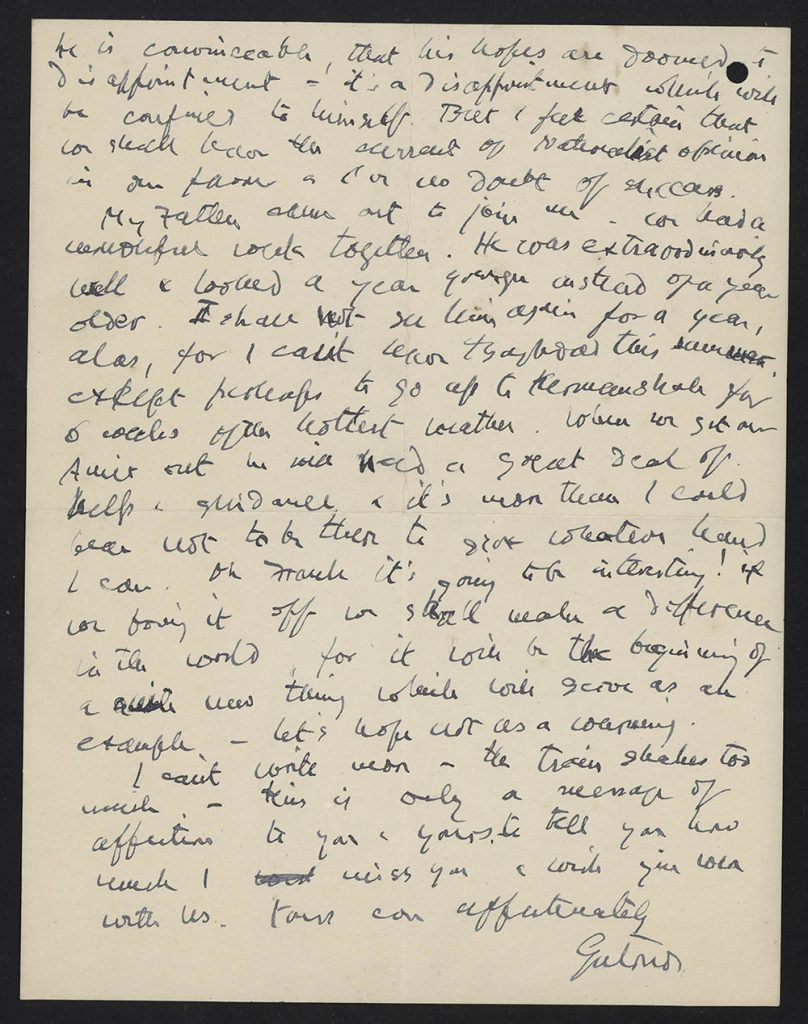 he is convinceable, that his hopes are doomed to
disappointment - it's a disappointment which will
be confined to himself. But I feel certain that
we shall have the current of Nationalist opinion
in our favour & I've no doubt of success.
My Father came out to join me - we had a
wonderful week together. He was extraordinarily
well & looked a year younger instead of a year
older. I shall not see him again for a year,
alas, for I can't leave Baghdad this summer
except perhaps to go up to Kermanshah for
6 weeks of the hottest weather. When we get our
Amir out he will need a great deal of
help & guidance & it's more than I could
bear not to be there to give whatever hand
I can. Oh Frank it's going to be interesting! if
we bring it off we shall make a difference
in the world, for it will be the beginning of
a quite new thing which will serve as an
example - let's hope not as a warning.
I can't write more - the train shakes too
much - this is only a message of
affection to you & yours, to tell you how
much I miss you & wish you were
with us. Your affectionately
Gertrude